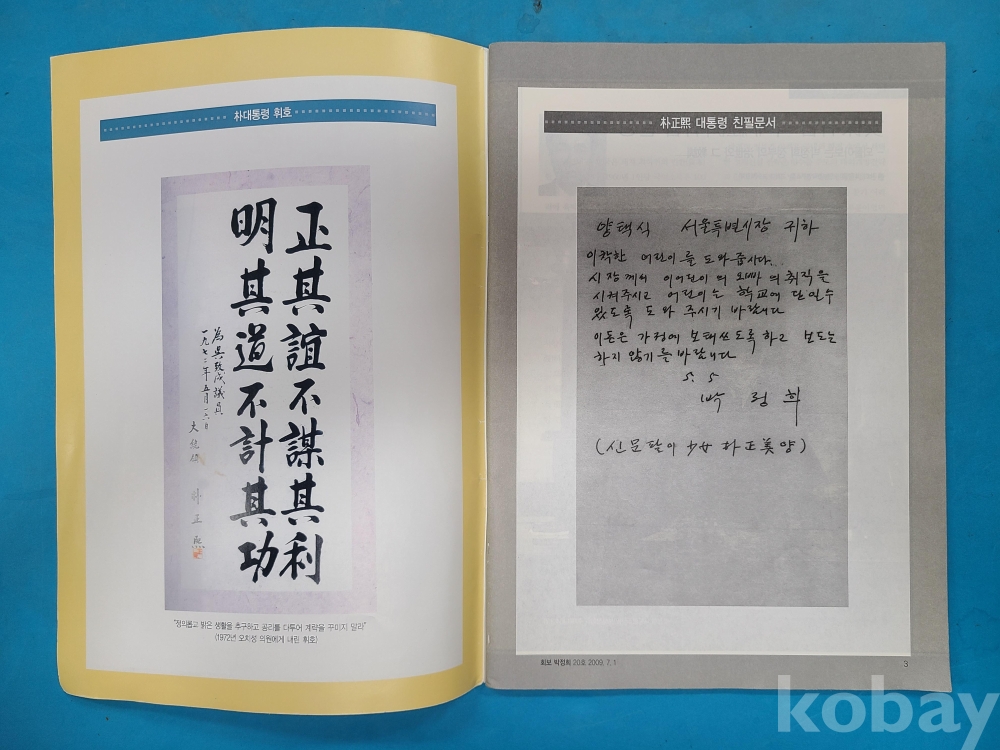 朴대통령 휘호
正其誼不謀其利
明其道不計其功
為吳致成議員
一九七二年五月一六日
大統領 朴正熙
"정의롭고 밝은 생활을 추구하고 공리를 다투어 계략을 꾸미지 말라"
(1972년 오치성 의원에게 내린 휘호)
朴正熙 대통령 친필문서
양택식 서울특별시장 귀하
이착한 어린이를 도와줍시다.
시장께서 이어린이의 오빠의 취직을
시켜주시고 어린이는 학교에 단일수
있도록 도와 주시기 바랍니다
이돈은 가정에 보태쓰도록 하고 보도는
하지 않기를 바랍니다
5. 5
박 정 희
(신문팔이 少女 朴正美양)
회보 박정희 20호 2009. 7. 1
3
kobay